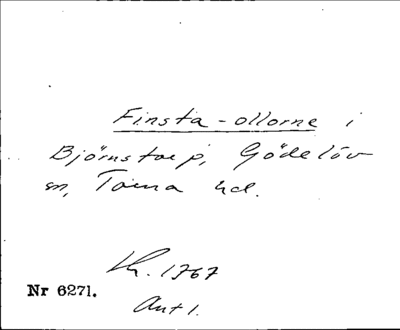 Finsta-ollorne i
Björnstorp, Gödelöv
sn, Torna hd.
Lh. 1767
Nr 6271.
Ant 1.